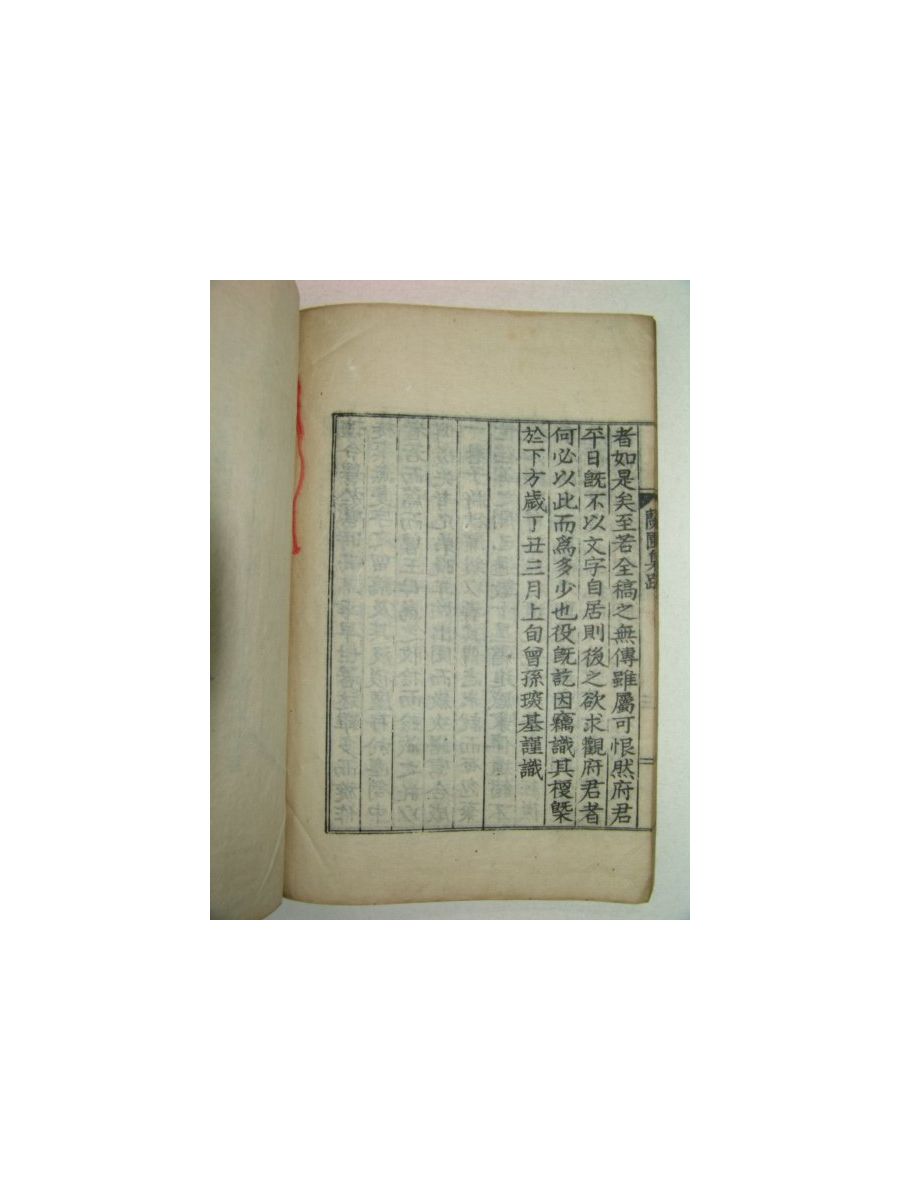 者如是矣至若全稿之無傳雖屬可恨然府君
平日旣不以文字自居則後之欲求觀府君者
何必以此而爲多少也役旣訖因竊識其榎槩
於下方歲丁丑三月上旬曾孫琰基謹識
集跋
二